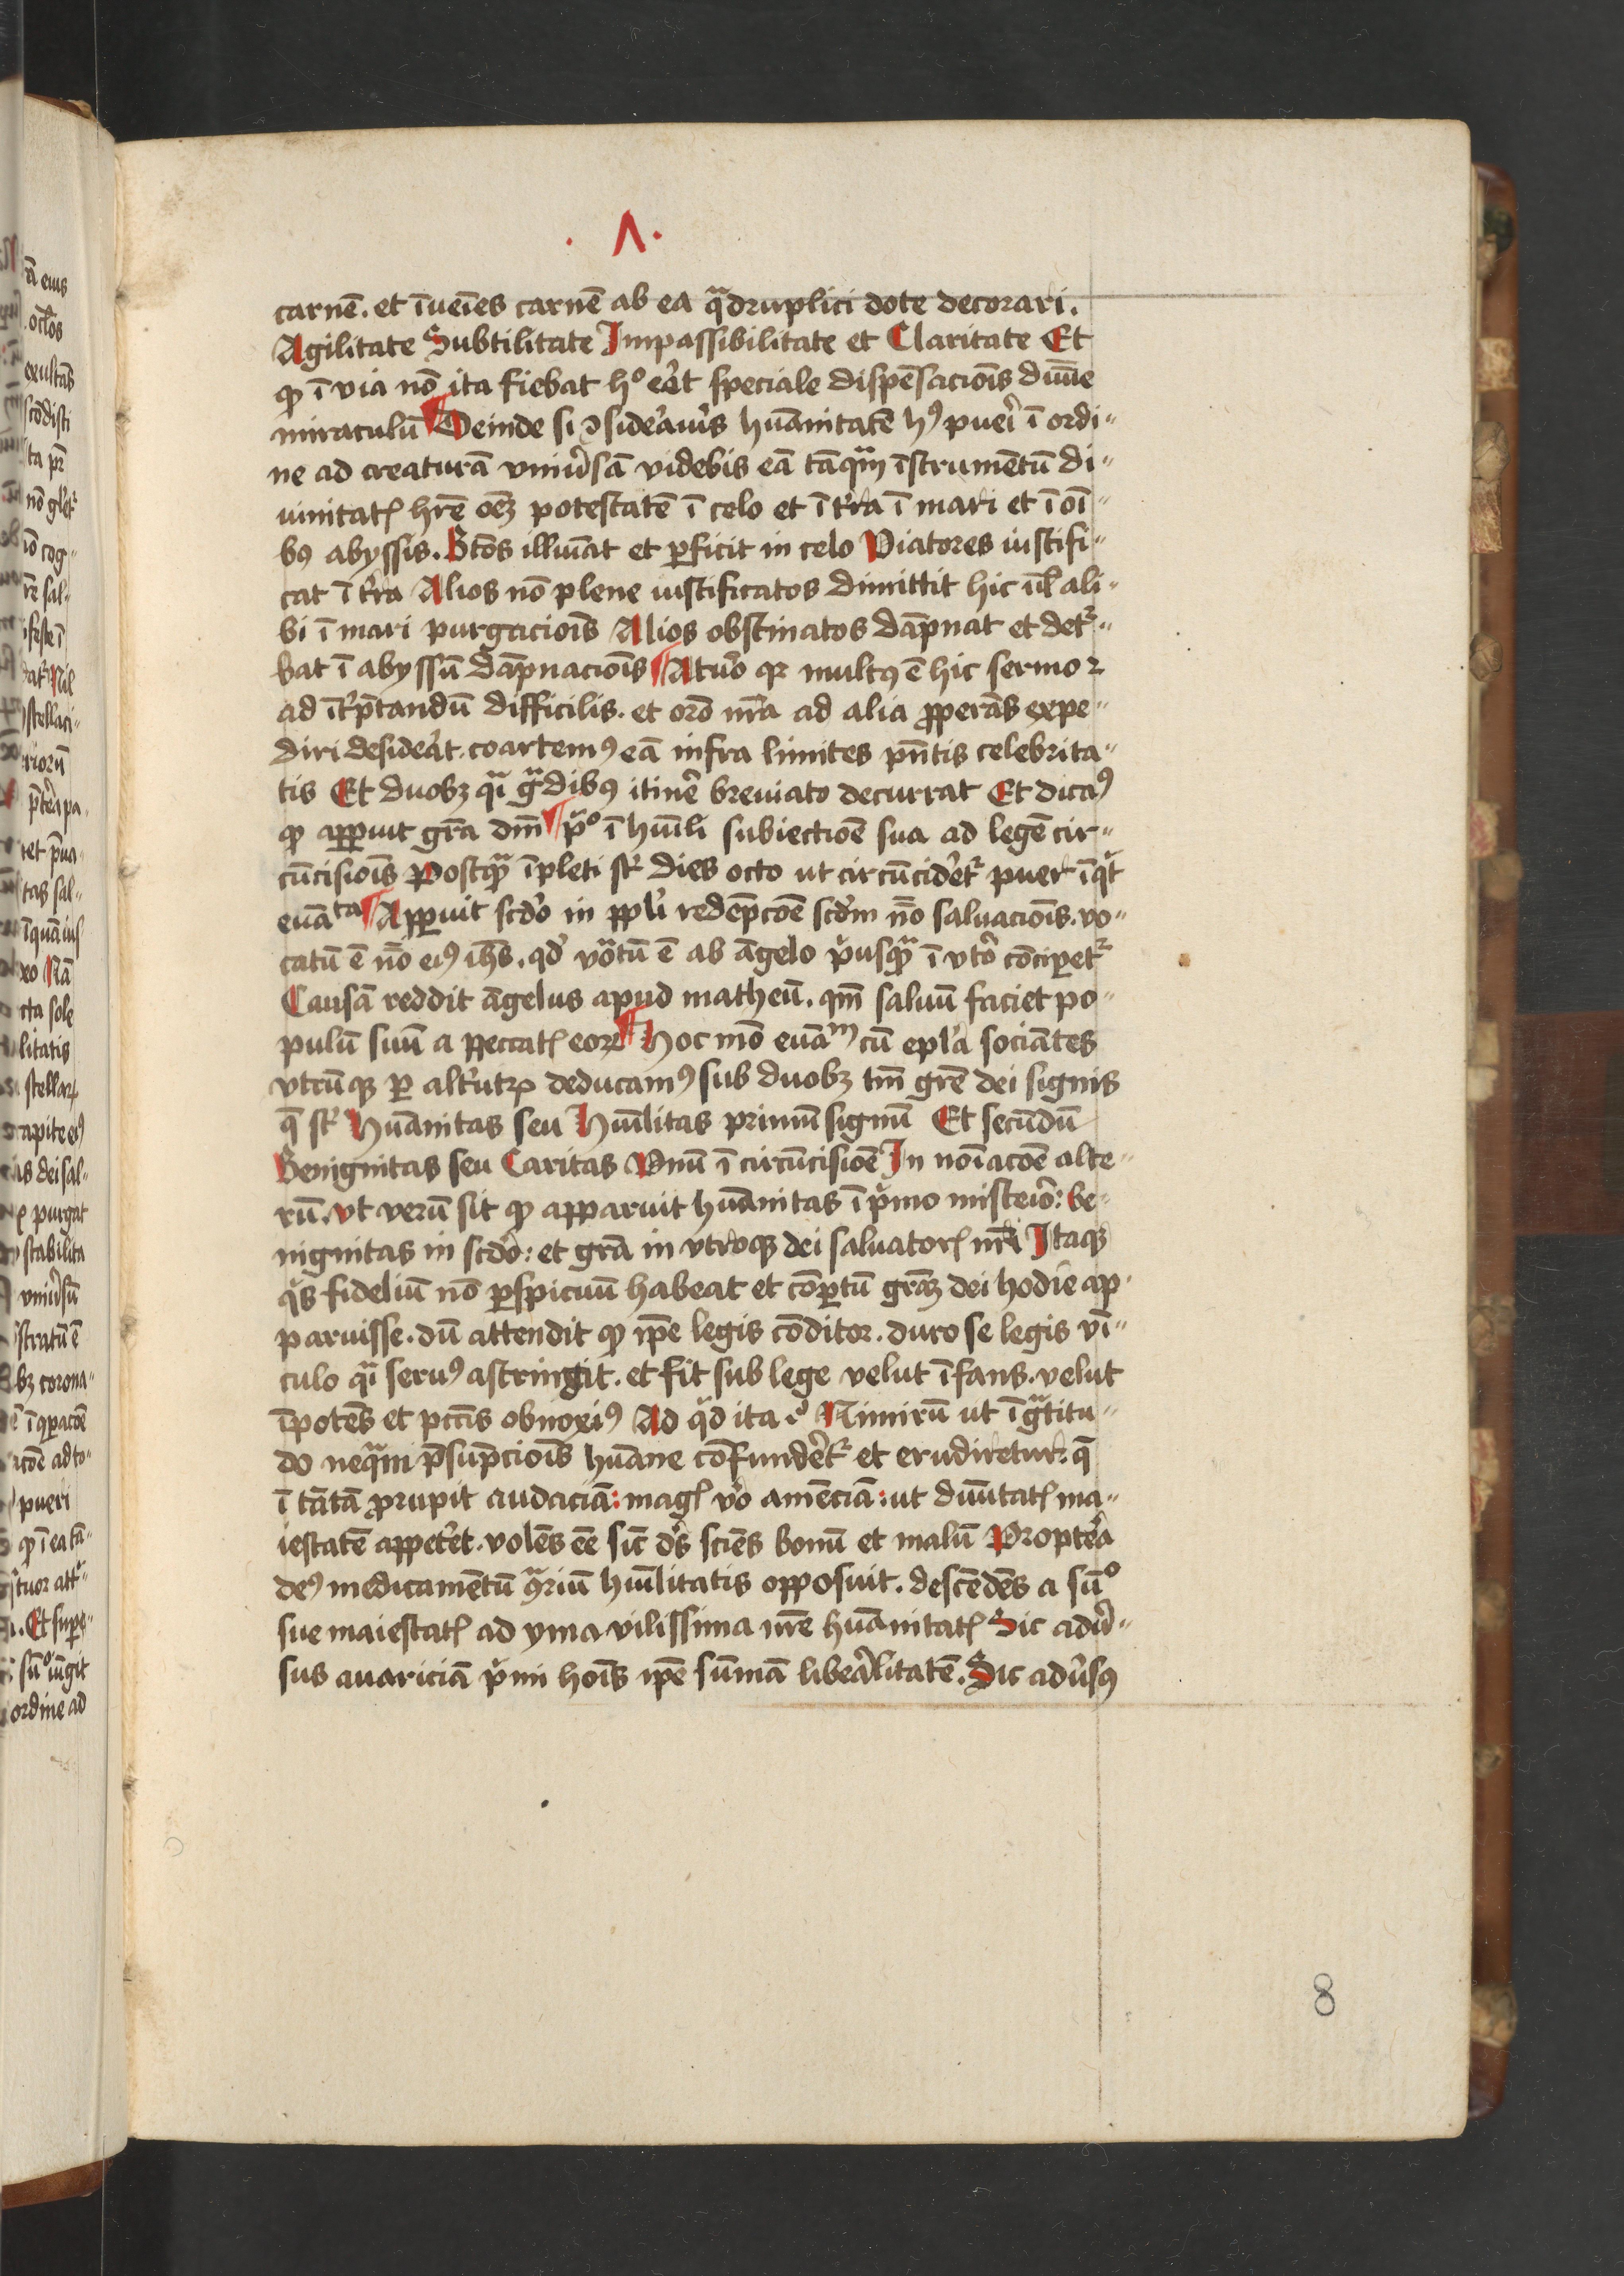 . Λ .
carnē. et īueīes carnē ab ea qᵃdruplici dote decorari.
Agilitate Subtilitate Impassibilitate et Claritate Et
ꝙ ī via nō ita fiebat hᵒ eēt speciale dispēsacioīs diuīe
miraculū ¶ Deinde si ɔsideͣuͥs huāitatē hꝰ pueͥ ī ordi-
ne ad creaturā vniuͥsā videbis eā tāqᵃm īstrumētū di-
uinitatꝭ hr̄e oēꝫ potestatē ī celo et ī tr̄ra ī mari et ī oī-
bꝰ abyssis. Btōs illuīat et ꝑficit in celo Viatores iustifi-
cat ī tr̄ra Alios nō plene iustificatos dimittit hic ul̄ ali-
bi ī mari purgacioīs Alios obstinatos dāpnat et detͬ-
bat ī abyssū dāpnacioīs ¶ At uͦo qꝛ multꝰ ē hic sermo ⁊
ad īt̉p̄tandū difficilis. et orō nr̄a ad alia ꝓperās expe-
diri desideͣt. coartemꝰ eā infra limites pn̄tis celebrita-
tis Et duobꝫ qᵃi gᵃdibꝰ itineͤ breuiato decurrat Et dicaꝰ
ꝙ apꝑuit gr̄a dm̄ ¶ pͥᵒ ī huīli subiectiōe sua ad legē cir-
cūcisioīs Postqᵃ īpleti st̄ dies octo ut circūcideͤtͬ puer īqͥt
euāᵗᵃ ¶ Apꝑuit scdͦo in ppl̄i redēpcōe scdͫm nō saluacioīs. vo-
catū ē nō eiꝰ ihs̄. qd̓ voͣtū ē ab āgelo pͥusqᵃ ī vtͦo cōciperetͬ
Causā reddit āgelus apud matheū. qm̄ saluū faciet po-
pulū suū a peccatꝭ eoꝝ ¶ Hoc mō euāᵐ cū epl̄a sociātes
vtcūqꝫ ꝑ alt̉utꝝ deducamꝰ sub duobꝫ tm̄ grē dei signis
q̄ st̄ Huāitas seu Huīlitas primū signū Et secūdū
Benignitas seu Caritas Vnū ī circūcisiōe In noīacōe alte-
rū. vt verū sit ꝙ apparuit huānitas ī pͥmo misteͥo: be-
nignitas in scdͦo: et grā in vtroqꝫ dei saluatorꝭ nr̄i Itaqꝫ
qͥs fideliū nō ꝑspicuū habeat et cōꝑtū grāꝫ dei hodie ap-
paruisse. dū attendit ꝙ ip̄e legis cōditor. duro se legis vī-
culo qᵃi seruꝰ astringit. et fit sub lege velut īfans. velut
īpotēs et pctīs obnoxiꝰ Ad qͥd ita ⁊ͦ Nimirū ut īgᵃtitu-
do neqᵃm p̄sūpcioīs huāne cōfundeͤtͬ et erudiretur: q̄
ī tātā ꝓrupit audaciā: magꝭ vͦo amēciā: ut diuītatꝭ ma-
iestatē appeteͤt. volēs eē sic̄ d̓s sciēs bonū et malū Propteͣa
deꝰ medicamētū ɔͣriū huīlitatis opposuit. descēdēs a sūᵒ
sue maiestatꝭ ad yma vilissima nr̄e huānitatꝭ Sic aduͤ-
sus auariciā pͥmi hoīs ip̄e sūmā libeͣlitatē. Sic aduͤsꝰ
8